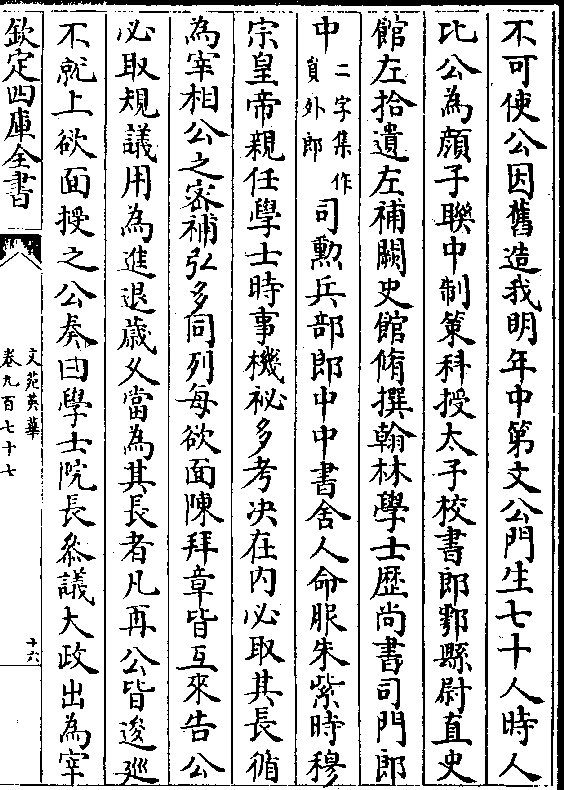 不可使公因舊造我明年中第文公門生七十人時人
比公為顔子聯中制策科授太子校書郎鄠縣尉直史
館左拾遺左補闕史館脩撰翰林學士歷尚書司門郎
中二字集作員外郎司勲兵部郎中中書舍人命服朱紫時穆
宗皇帝親任學士時事機祕多考决在内必取其長循
為宰相公之密補弘多同列每欲面陳拜章皆互來告公
必取規議用為進退歳久當為其長者凡再公皆逡廵
不就上欲面授之公奏曰學士院長叅議大政出為宰
欽定四庫全書
文苑英華
卷九百七十七
十六